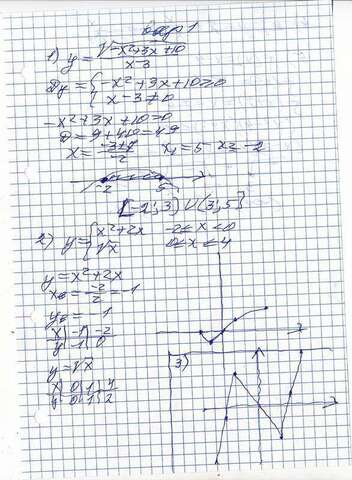 вар 1
1) y = √(-x²+3x+10) / (x-3)
Dy = { -x²+3x+10≥0
x-3≠0
-x²+3x+10=0
D=9+40=49
x= (-3±7)/-2   x₁=5   x₂=-2
-2   5
[-2; 3) U (3; 5]
2) y= { x²+2x   -2≤x<0
√x   0≤x≤4
y=x²+2x
xв= -2/2 = -1
yв= -1
x | -1 | -2
y | -1 | 0
y=√x
x | 0 | 1 | 4
y | 0 | 1 | 2
3)